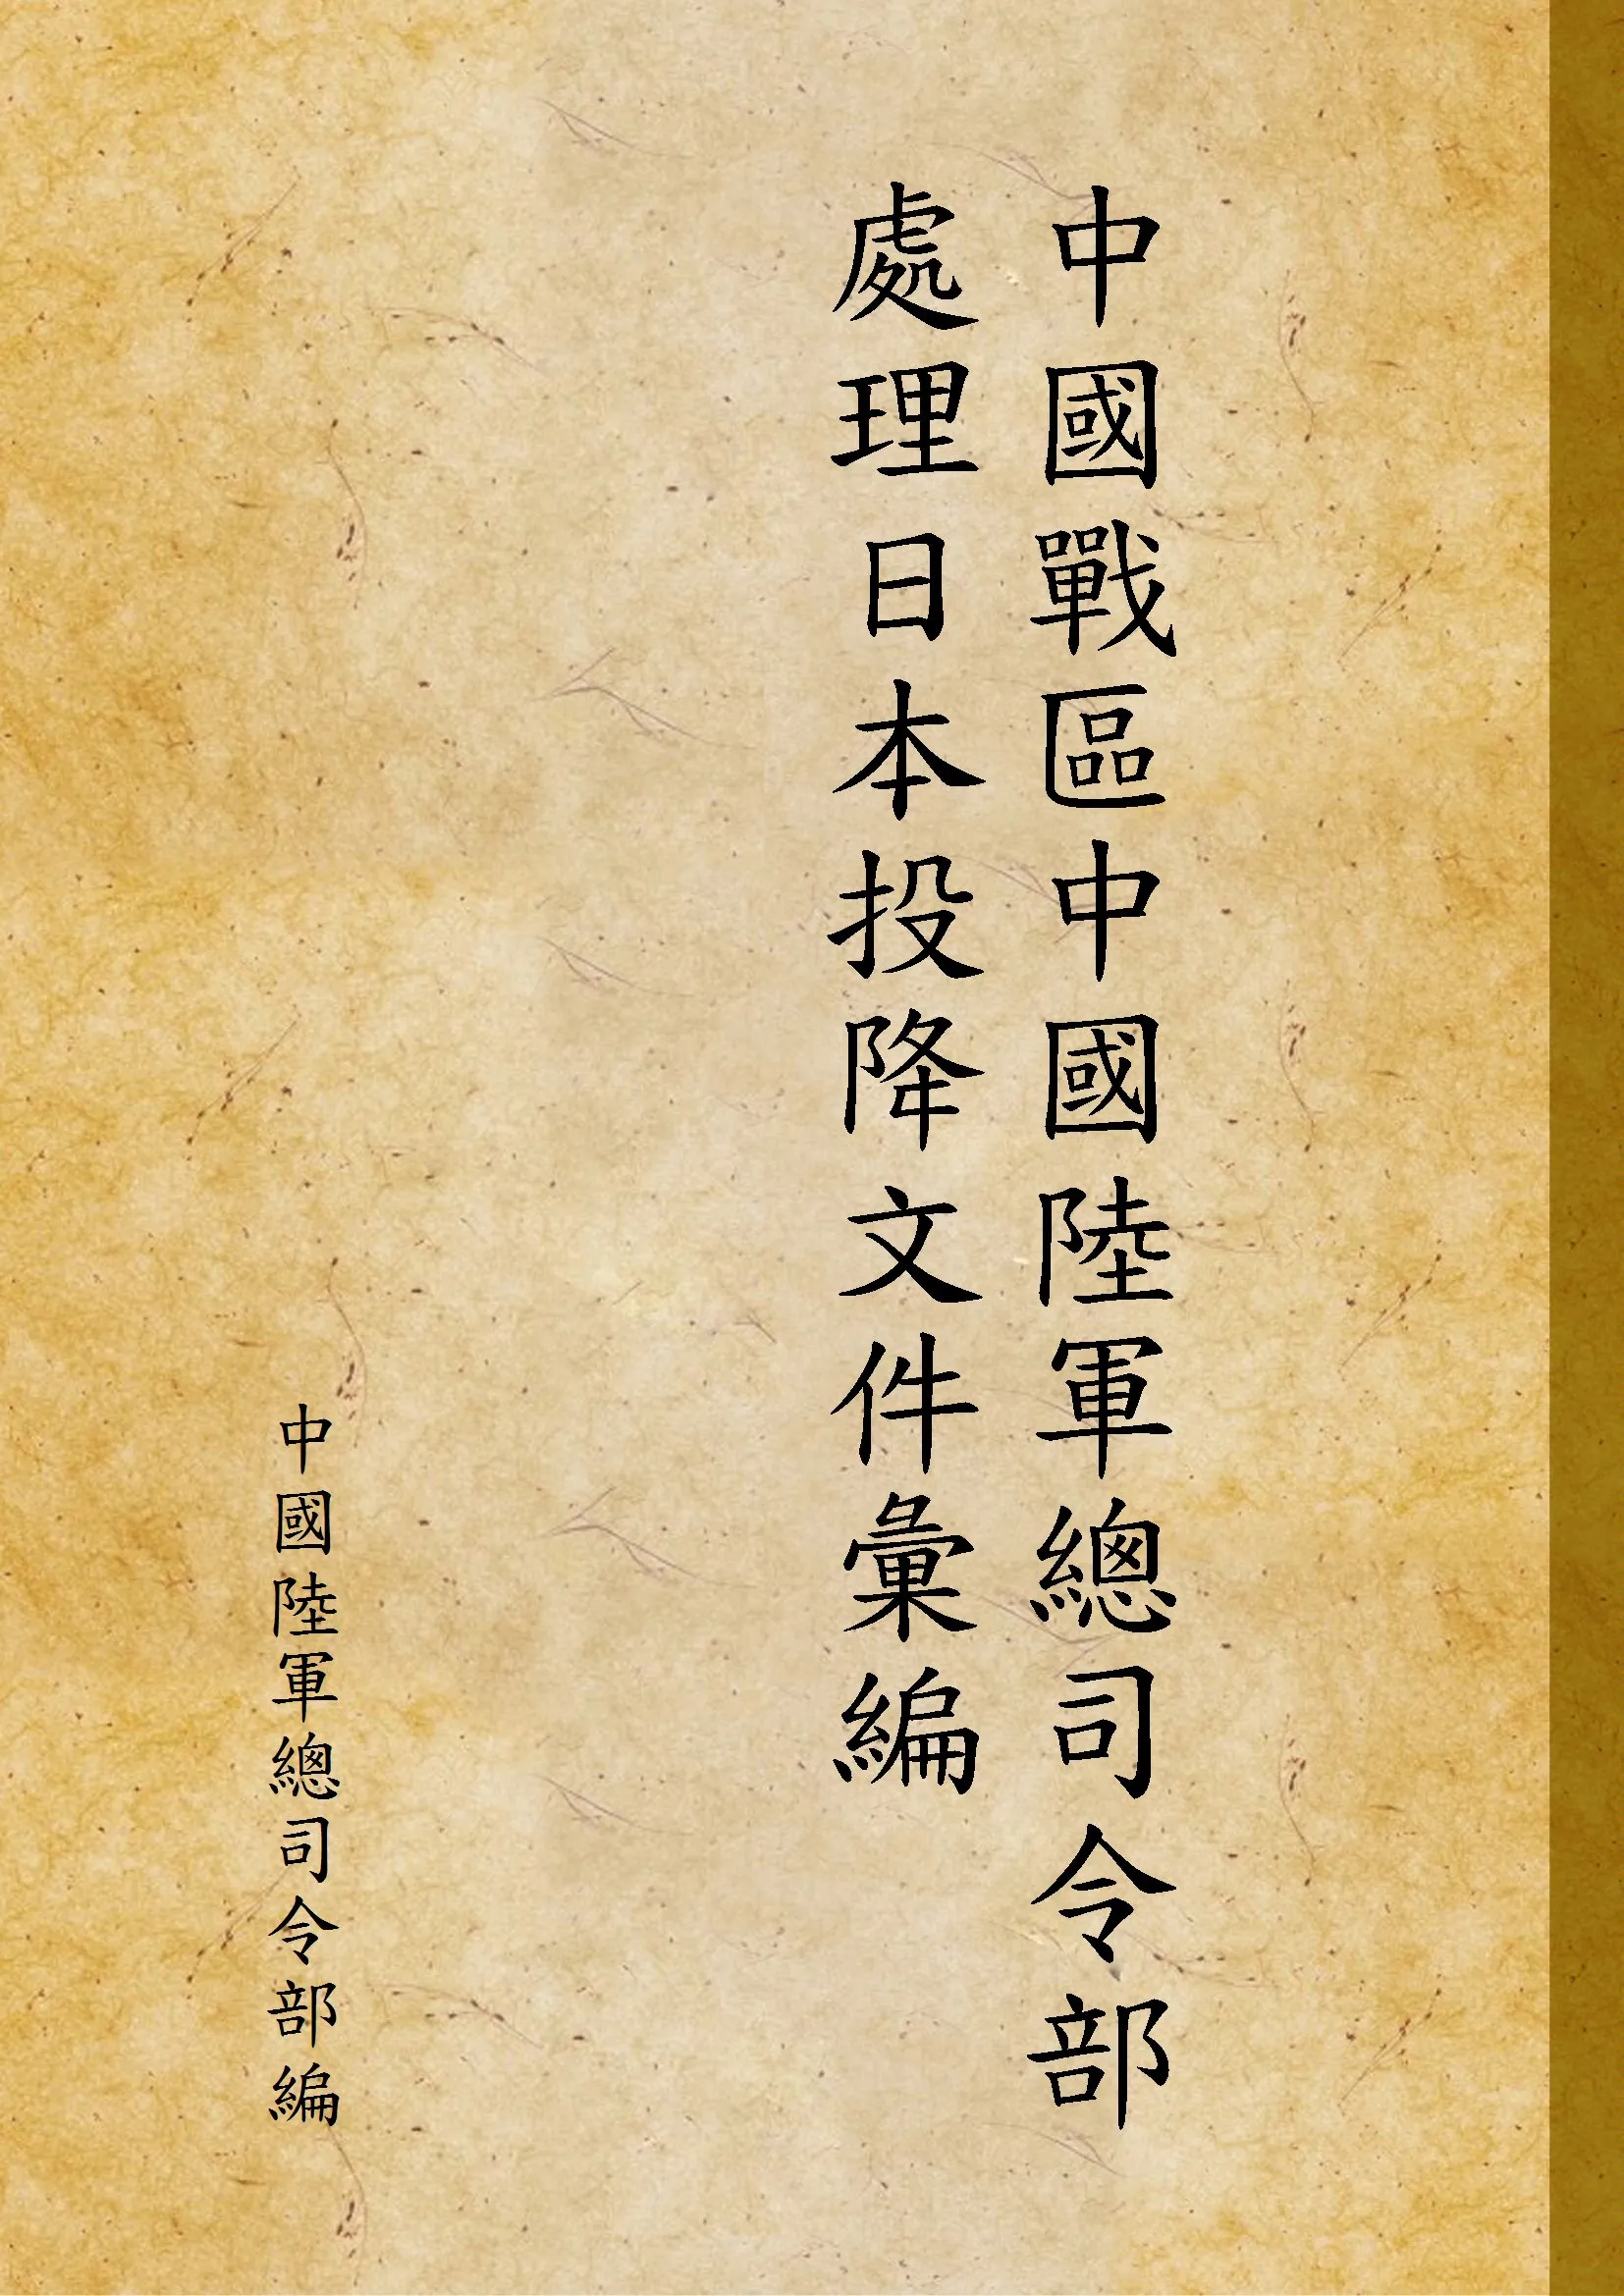 中國戰區中國陸軍總司令部
處理日本投降文件彙編
中國陸軍總司令部編